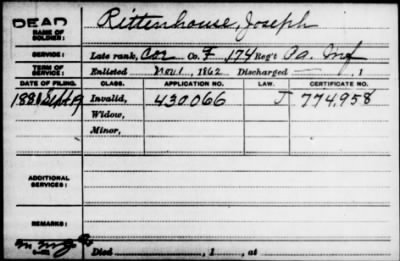 DEAD
NAME OF SOLDIER: Rittenhouse, Joseph
SERVICE: Late rank, Cor Co. F 174 Reg't Pa. Inf
TERM OF SERVICE: Enlisted Nov 1, 1862 Discharged —, 1
DATE OF FILING. CLASS. APPLICATION NO. LAW. CERTIFICATE NO.
Sept 19 Invalid, 430.066 J 774.958
Widow,
Minor,
ADDITIONAL SERVICES:
REMARKS:
Died , 1 , at